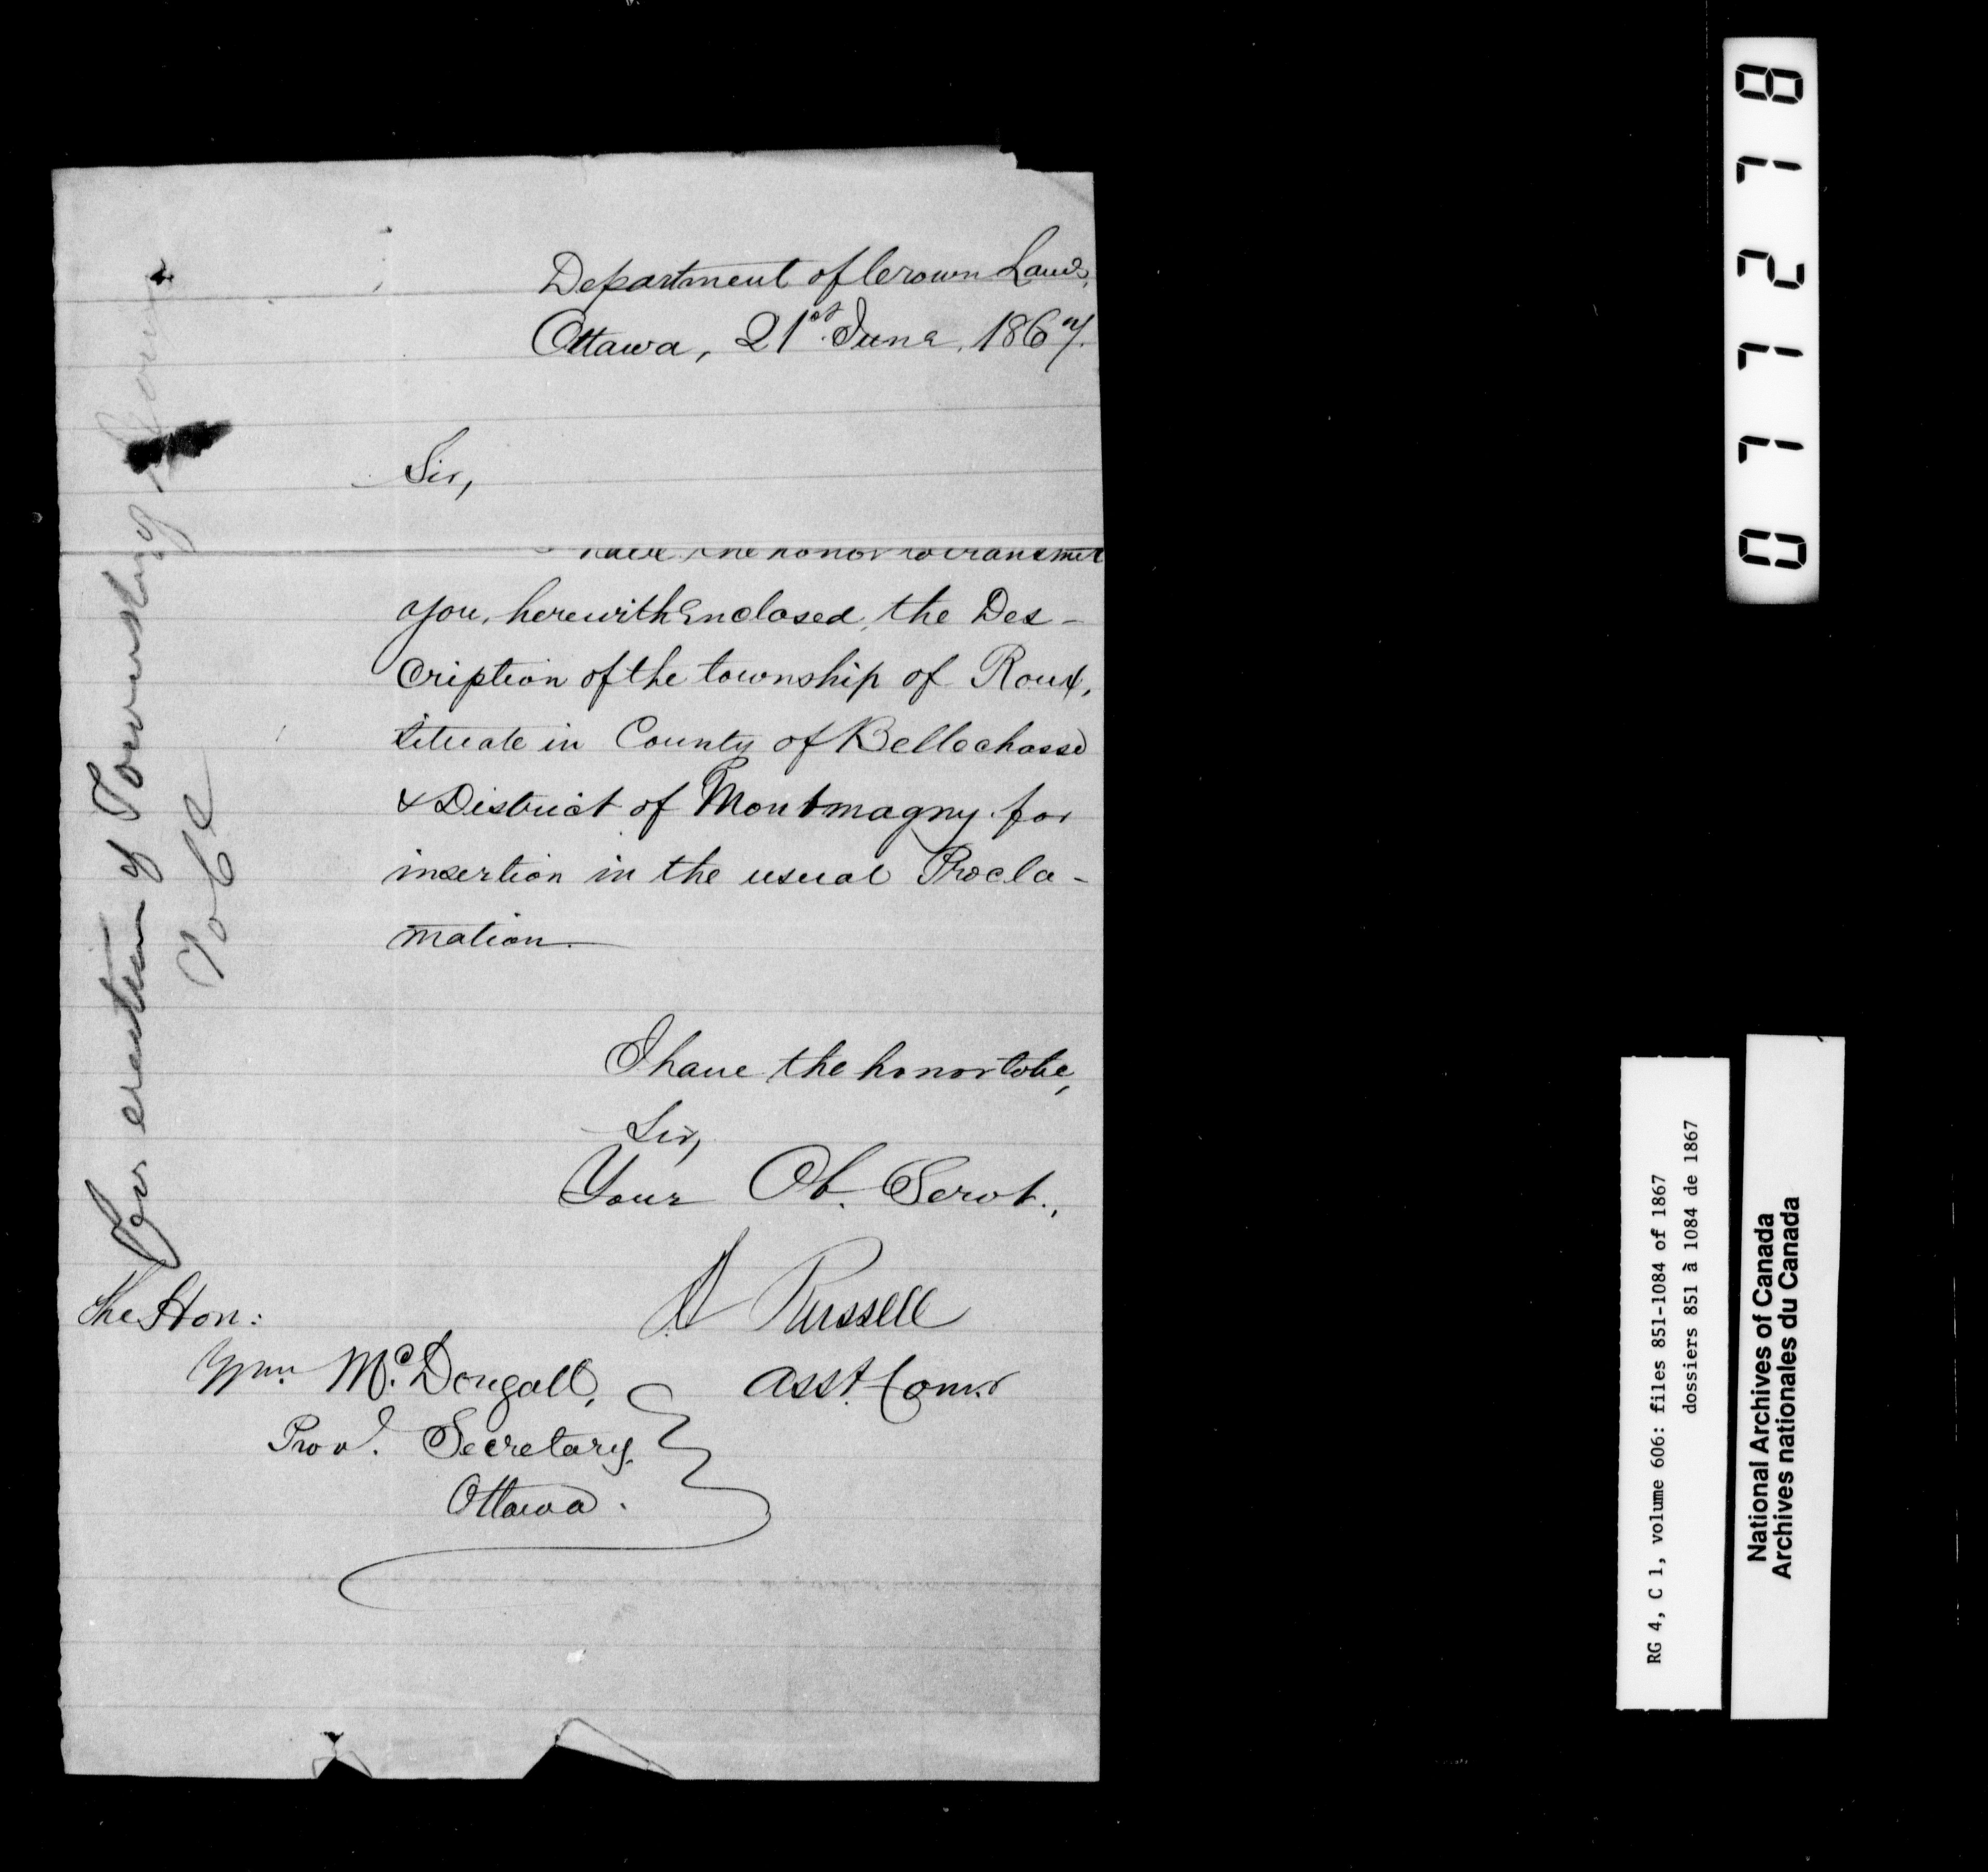 Department of Crown Lands,
Ottawa, 21st June, 1867.
Sir,
I have the honor to transmit
you, herewith Enclosed, the Des-
cription of the township of Roux,
situate in County of Bellechasse
& District of Montmagny for
insertion in the usual Procla-
mation.
I have the honor to be,
Sir,
Your Ob. Servt.,
A Russell
Asst. Comr
The Hon:
Wm. McDougall,
Prov. Secretary
Ottawa.
For erection of Township of Roux
077278
RG 4, C 1, volume 606: files 851-1084 of 1867
dossiers 851 à 1084 de 1867
National Archives of Canada
Archives nationales du Canada